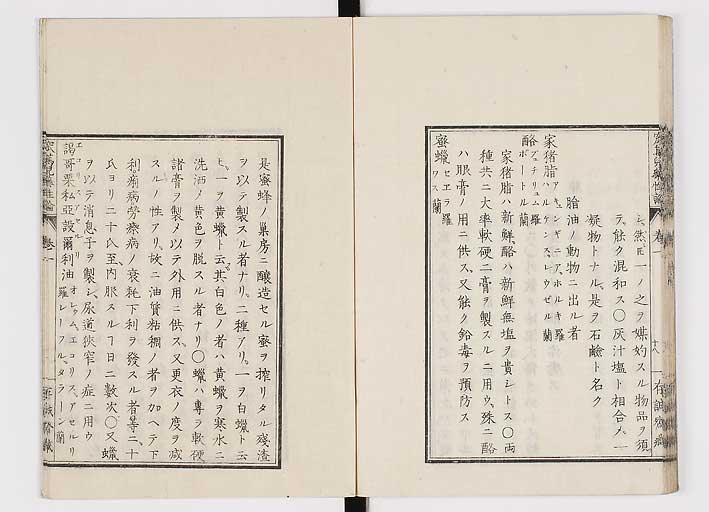 シ然㔫一ノ之ヲ媒妁スル物品ヲ須
テ能ク混和ス〇灰汁塩ト相合メ一
疑物トナル是ヲ石鹸ト名ク
脂油ノ動物ニ出ル者
家猪脂
酪 ブチリュム 羅 ボートル 蘭
家猪脂ハ新鮮酪ハ新鮮無塩ヲ貴レトス〇両
種共ニ大率軟硬二膏ヲ製スルニ用ウ殊ニ酪
ハ眼膏ノ用ニ供ス又能ク鉛毒ヲ預防ス
蜜蠟 セエラ 羅 ワス 蘭
是蜜蜂ノ巣房ニ醸造セル蜜ヲ搾リタル残渣
ヲ以テ製スル者ナリ二種アリ一ヲ白蠟ト云
ヒ一ヲ黄蠟ト云其白色ノ者ハ黄蠟ヲ寒水ニ
洗洒ノ黄色ヲ脱スル者ナリ〇蠟ハ専ラ軟硬
諸膏ヲ製メ以テ外用ニ供ス又更衣ノ度ヲ減
スルノ性アリ故ニ油質粘稠ノ者ヲ加ヘテ下
利痢病労療病ノ衰耗下利ヲ発スル者等二十
氏ヨリ二十氏至内服スル1日ニ数次〇又蠟
ヲ以テ消息子ヲ製シ尿道狭窄ノ症ニ用ウ
謁哥栗私亜設爾利油